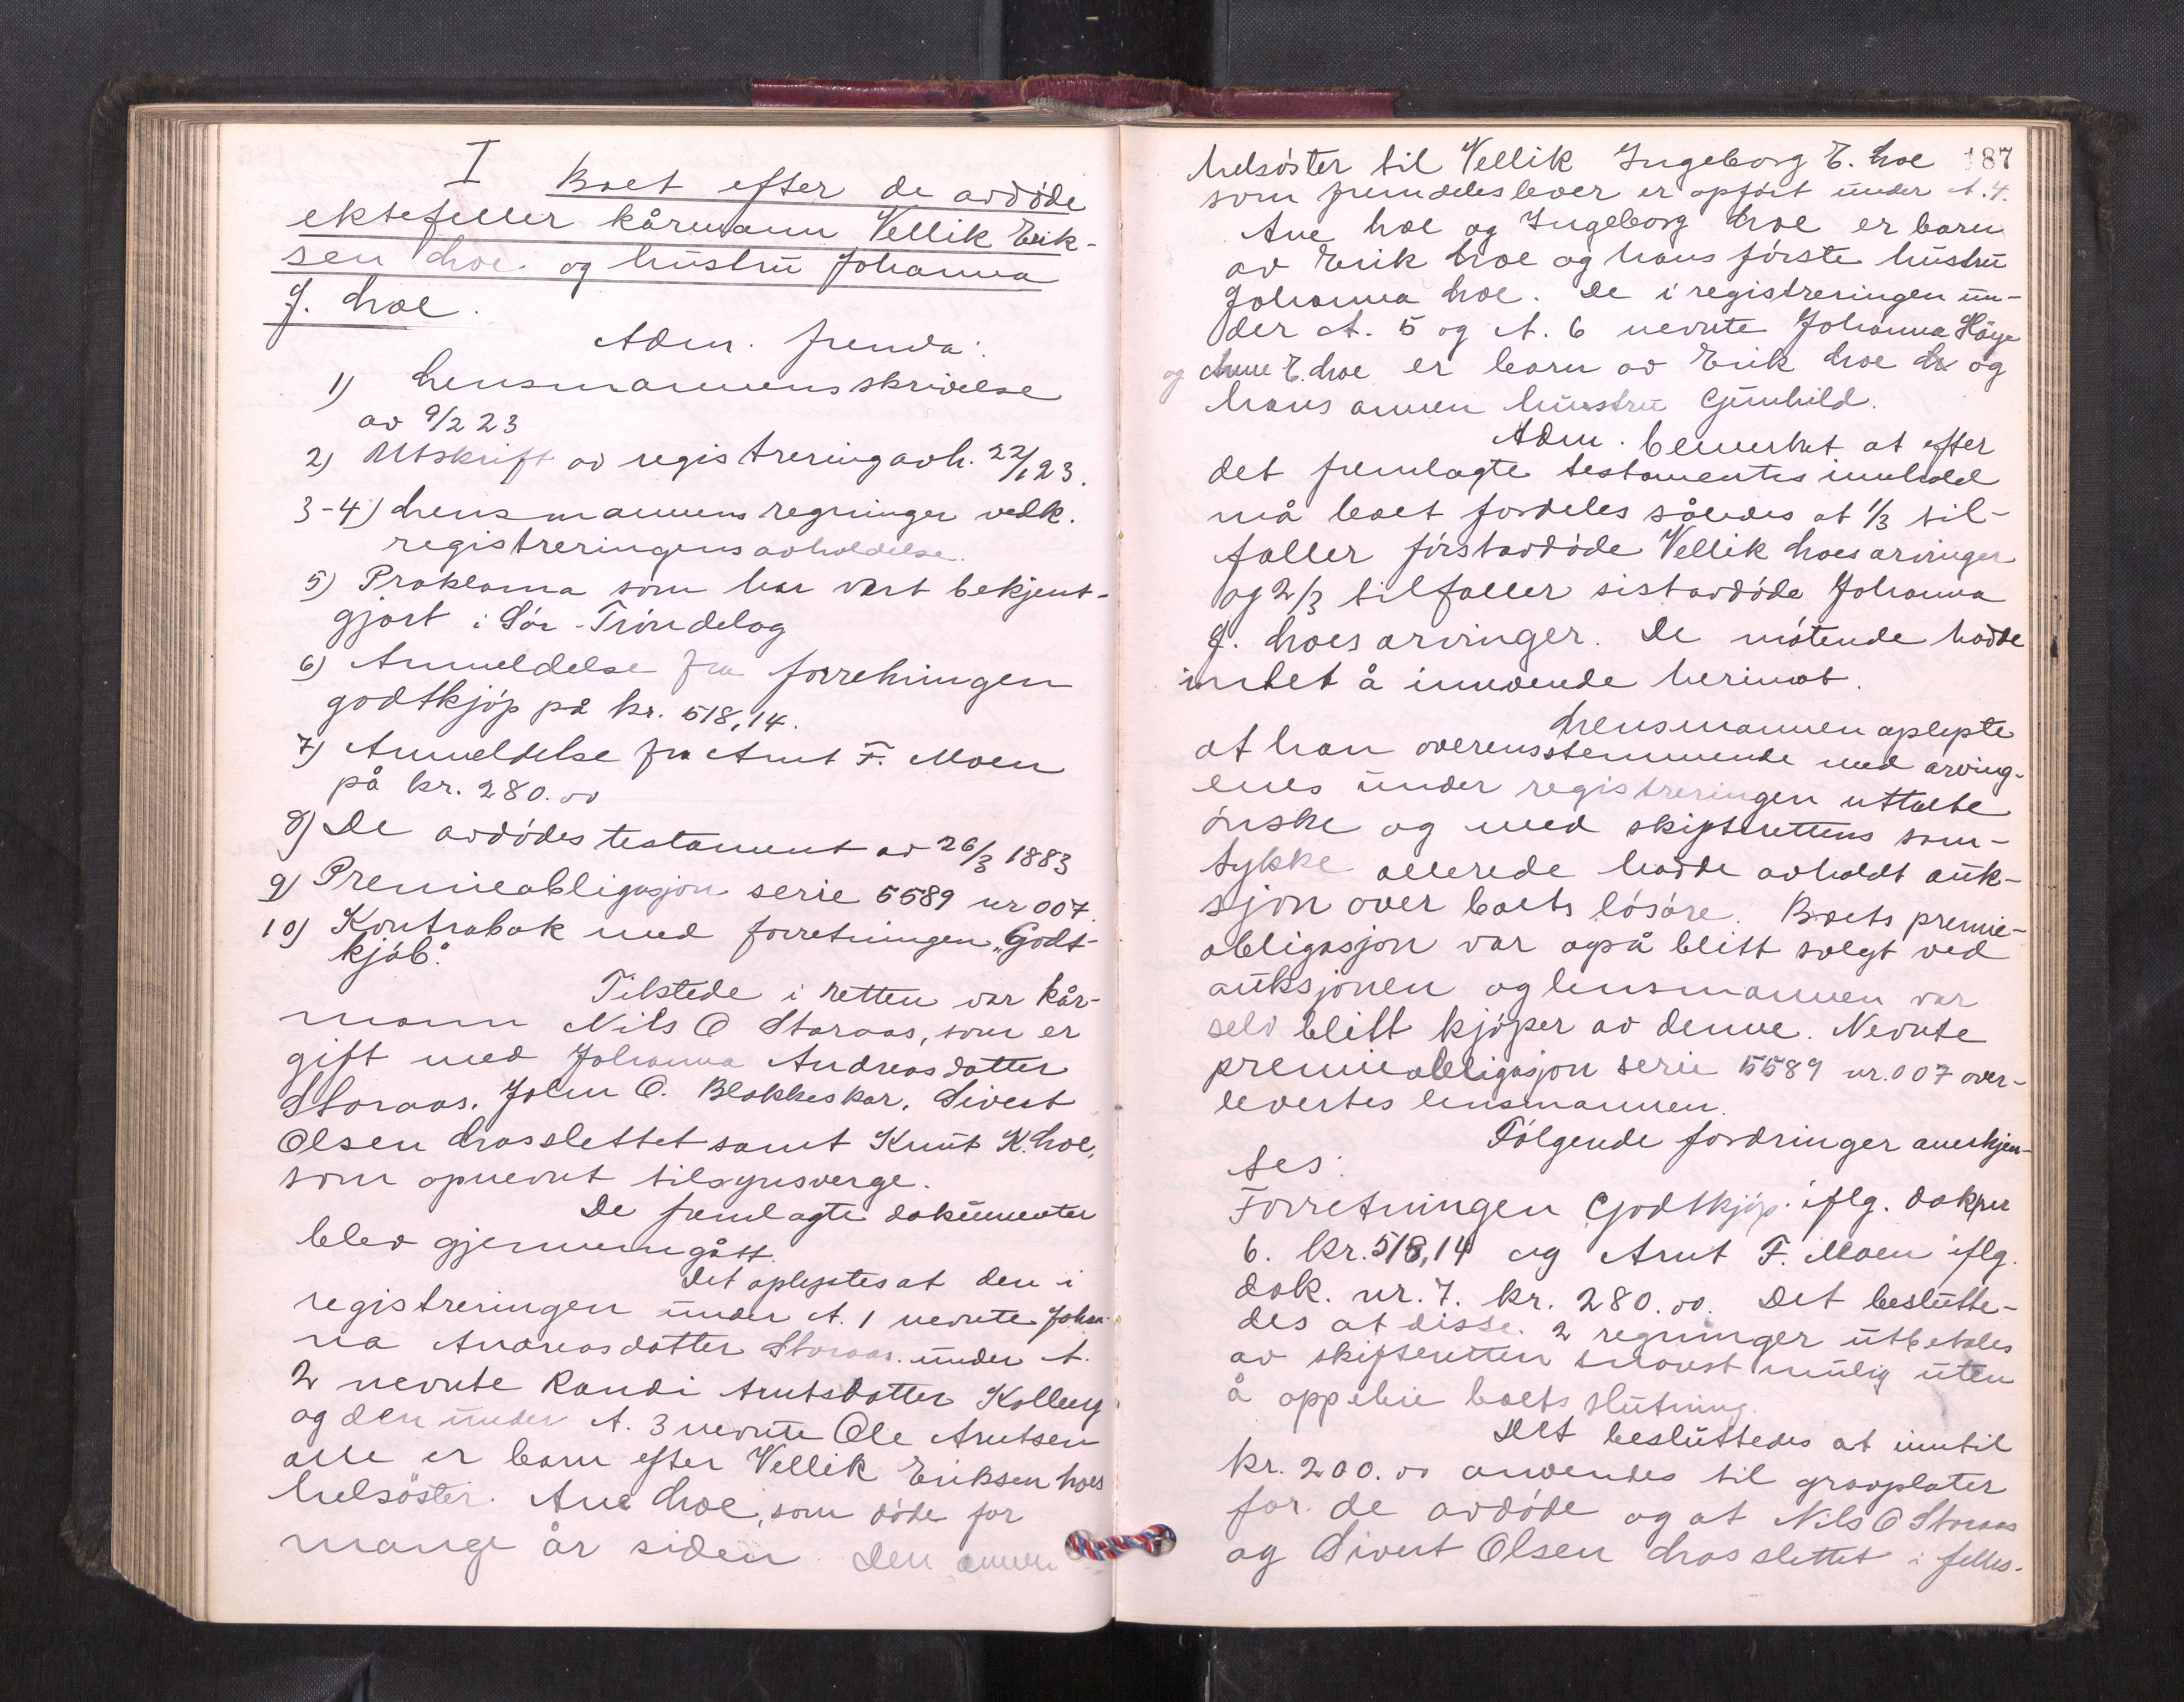 I Boet efter de avdøde
ektefeller kårmann Vellik Erik-
sen Loe og hustru Johanna
J. Loe.
Adm. fremla:
1) Lensmannens skrivelse
av 9/2 23
2) Utskrift av registrering avh. 22/1 23.
3-4) Lensmannens regninger vedk.
registreringens avholdelse.
5) Proklama som har vært bekjent-
gjort i Sør-Trøndelag
6) Anmeldelse fra forretningen
godtkjøp på kr. 518,14.
7) Anmeldelse fra Arnt F. Moen
på kr. 280.00
8) De avdødes testament av 26/3 1883
9) Premieobligasjon serie 5589 nr 007.
10) Kontrabok med forretningen „Godt-
kjøb".
Tilstede i retten var kår-
mann Nils O Storaas, som er
gift med Johanna Andreasdatter
Storaas, John O. Blokkeskar, Sivert
Olsen Loeslettet samt Knut K. Loe,
som opnevnt tilsynsverge.
De fremlagte dokumenter
blev gjennemgått.
Det oplystes at den i
registreringen under A. 1 nevnte Johan-
na Andreasdatter Storaas. under A.
2 nevnte Randi Arntsdatter Kolberg
og den under A. 3 nevnte Ole Arntsen
alle er barn efter Vellik Eriksen Loes
helsøster Ane Loe, som døde for
mange år siden. Den annen
187
helsøster til Vellik Ingeborg E. Loe
som fremdeles lever er opført under A. 4.
Ane Loe og Ingeborg Loe er barn
av Erik Loe og hans første hustru
Johanna Loe. De i registreringen un-
der A. 5 og A. 6 nevnte Johanna Høge
og Anne E. Loe er barn av Erik Loe og
hans annen hustru Gunhild.
Adm. bemerket at efter
det fremlagte testamentes innhold
må boet fordeles således at 1/3 til-
faller førstavdøde Vellik Loes arvinger
og 2/3 tilfaller sistavdøde Johanna
J. Loes arvinger. De møtende hadde
intet å innvende herimot.
Lensmannen oplyste
at han overensstemmende med arving-
enes under registreringen uttalte
ønske og med skifterettens sam-
tykke allerede hadde avholdt auk-
sjon over boets løsøre. Boets premie-
obligasjon var også blitt solgt ved
auksjonen og lensmannen var
selv blitt kjøper av denne. Nevnte
premieobligasjon serie 5589 nr. 007 over-
levertes lensmannen.
Følgende fordringer anerkjen-
tes:
Forretningen Godtkjøp iflg. dok. nr
6. kr. 518,14 og Arnt F. Moen iflg.
dok. nr. 7. kr. 280.00. Det beslutte-
des at disse 2 regninger utbetales
av skifteretten snarest mulig uten
å oppebie boets slutning.
Det besluttedes at inntil
kr. 200.00 anvendes til gravplater
for de avdøde og at Nils O Storaas
og Sivert Olsen Loeslettet i felles-